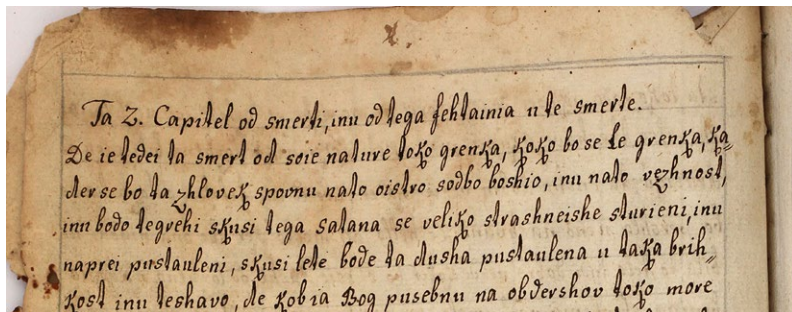 Ta 2. Capitel od smerti, inu od tega fehtainia u te smerte.
De ie tedei ta smert od soie nature toko grenka, koko bo se le grenka, ka„
der se bo ta zhlovek spovnu na to oistro sodbo boshio, inu na to vezhnost,
inu bodo te grehi skusi tega satana se veliko strashneishe sturieni, inu
naprei pustauleni, skusi lete bode ta dusha pustaulena u taka brih„
kost inu teshavo, de kob ia Bog pusebnu na obdershov toko more